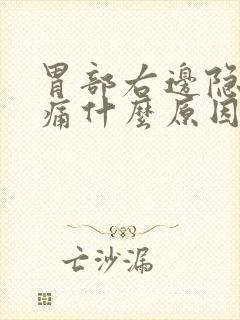 胃部右邊隐
痛什麼原因
亡沙漏